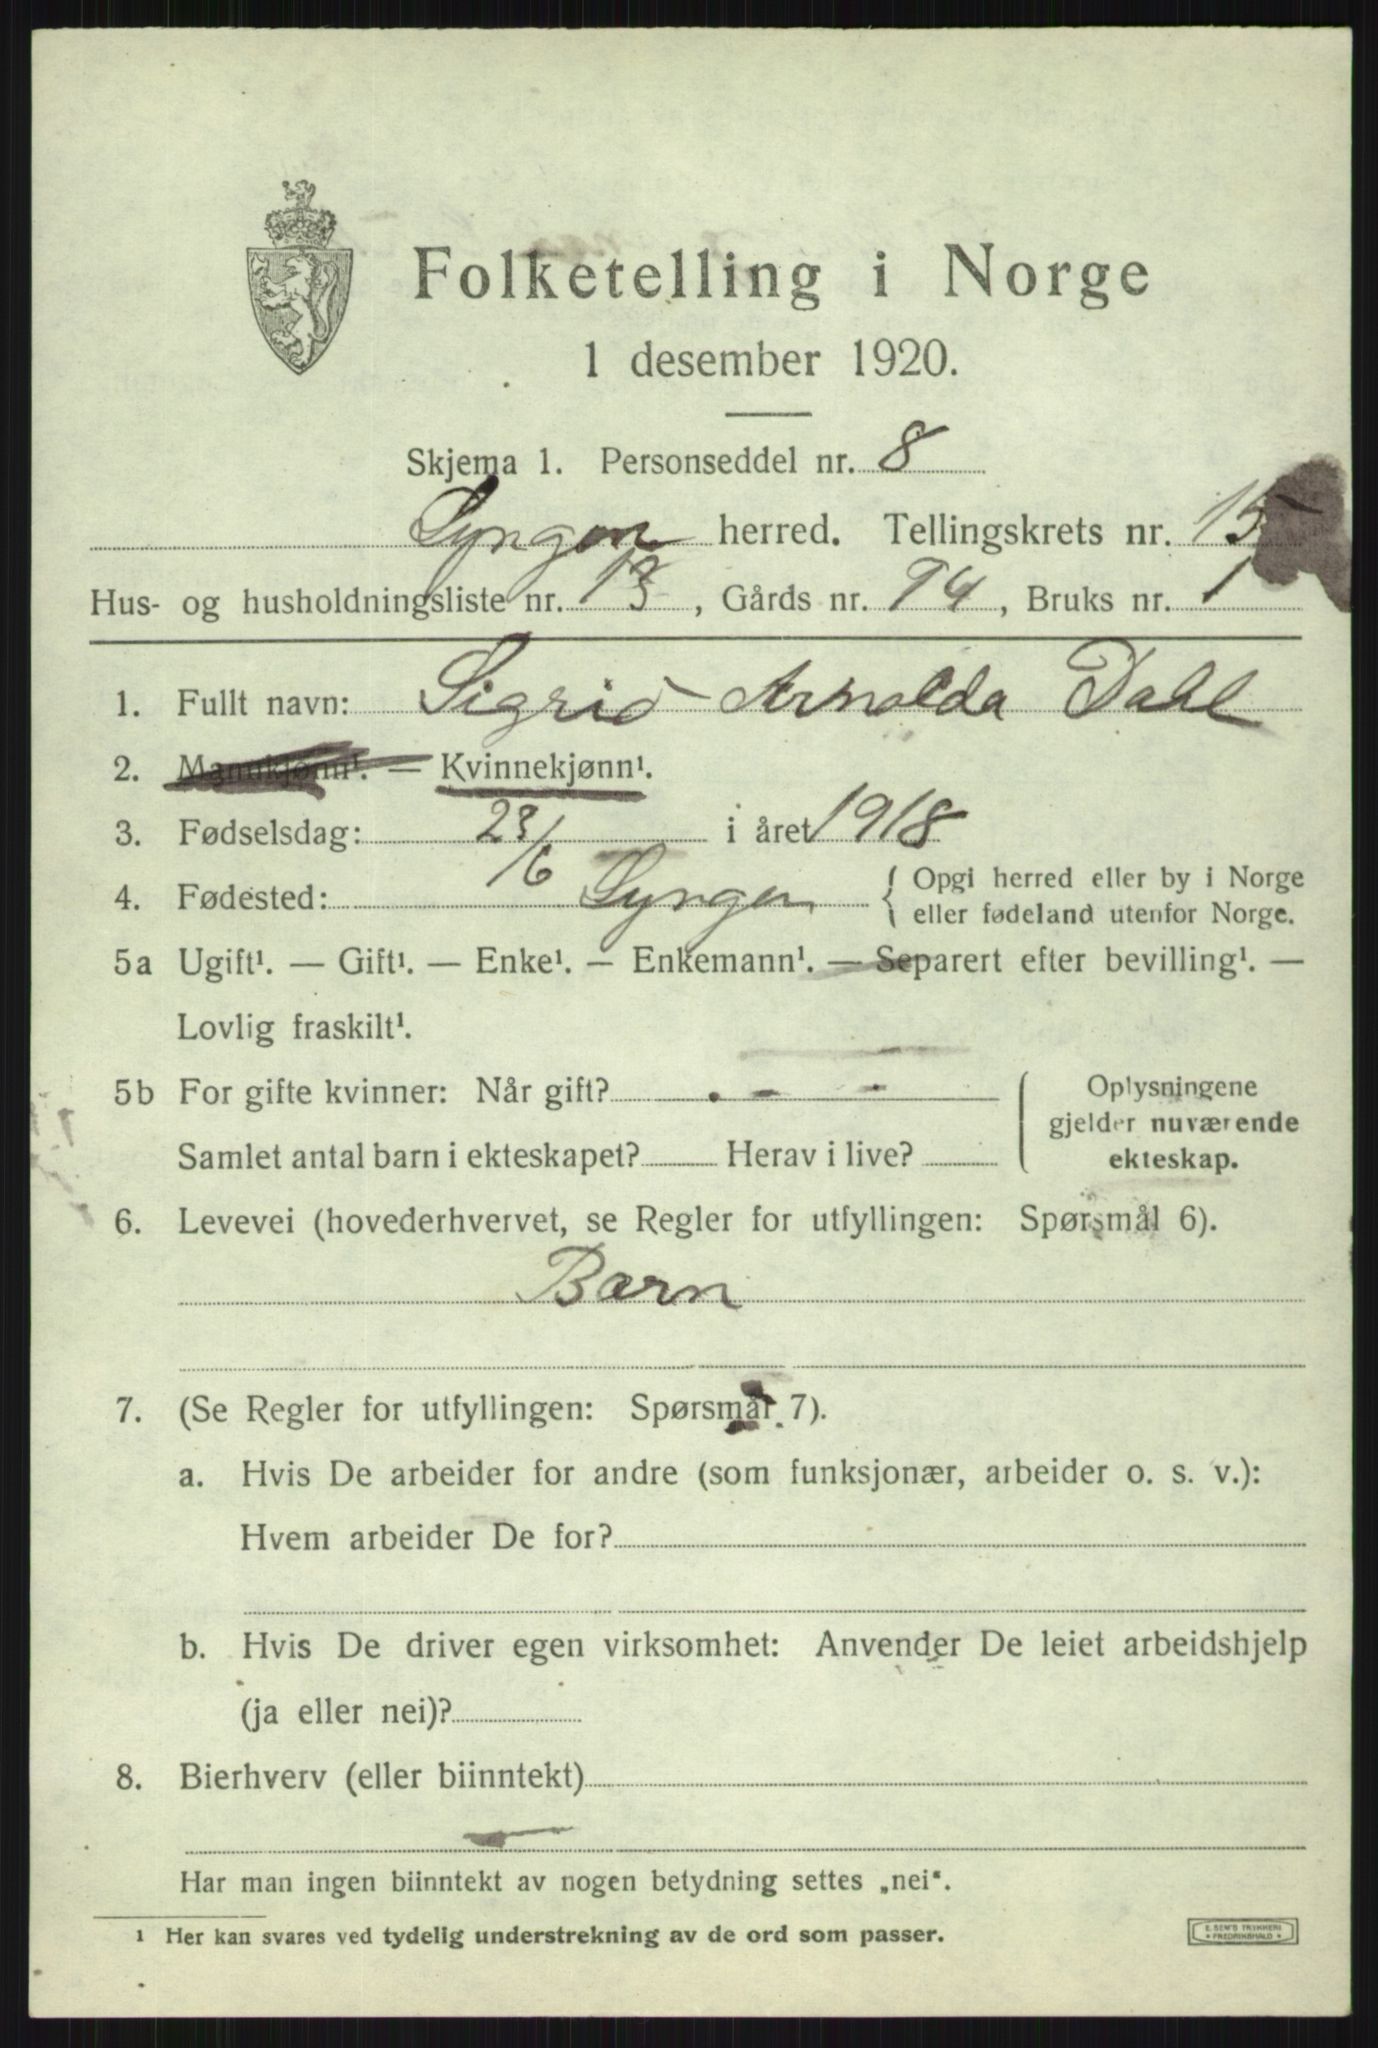 Folketelling i Norge
1 desember 1920.
Skjema 1. Personseddel nr. 8
Lyngen herred. Tellingskrets nr. 15
Hus- og husholdningsliste nr. 13, Gårds nr. 94, Bruks nr. 1
1. Fullt navn: Sigrid Arnolda Dahl
2. Mannkjønn¹. — Kvinnekjønn¹.
3. Fødselsdag: 23/6 i året 1918
4. Fødested: Lyngen { Opgi herred eller by i Norge
eller fødeland utenfor Norge.
5a Ugift¹. — Gift¹. — Enke¹. — Enkemann¹. — Separert efter bevilling¹. —
Lovlig fraskilt¹.
5b For gifte kvinner: Når gift? . - - { Oplysningene
gjelder nuværende
Samlet antal barn i ekteskapet? Herav i live? ekteskap.
6. Levevei (hovederhvervet, se Regler for utfyllingen: Spørsmål 6).
Barn
7. (Se Regler for utfyllingen: Spørsmål 7).
a. Hvis De arbeider for andre (som funksjonær, arbeider o. s. v.):
Hvem arbeider De for?
b. Hvis De driver egen virksomhet: Anvender De leiet arbeidshjelp
(ja eller nei)?
8. Bierhverv (eller biinntekt)
Har man ingen biinntekt av nogen betydning settes „nei“.
¹ Her kan svares ved tydelig understrekning av de ord som passer.
E. SEM'S TRYKKERI
• FREDRIKSHALD •